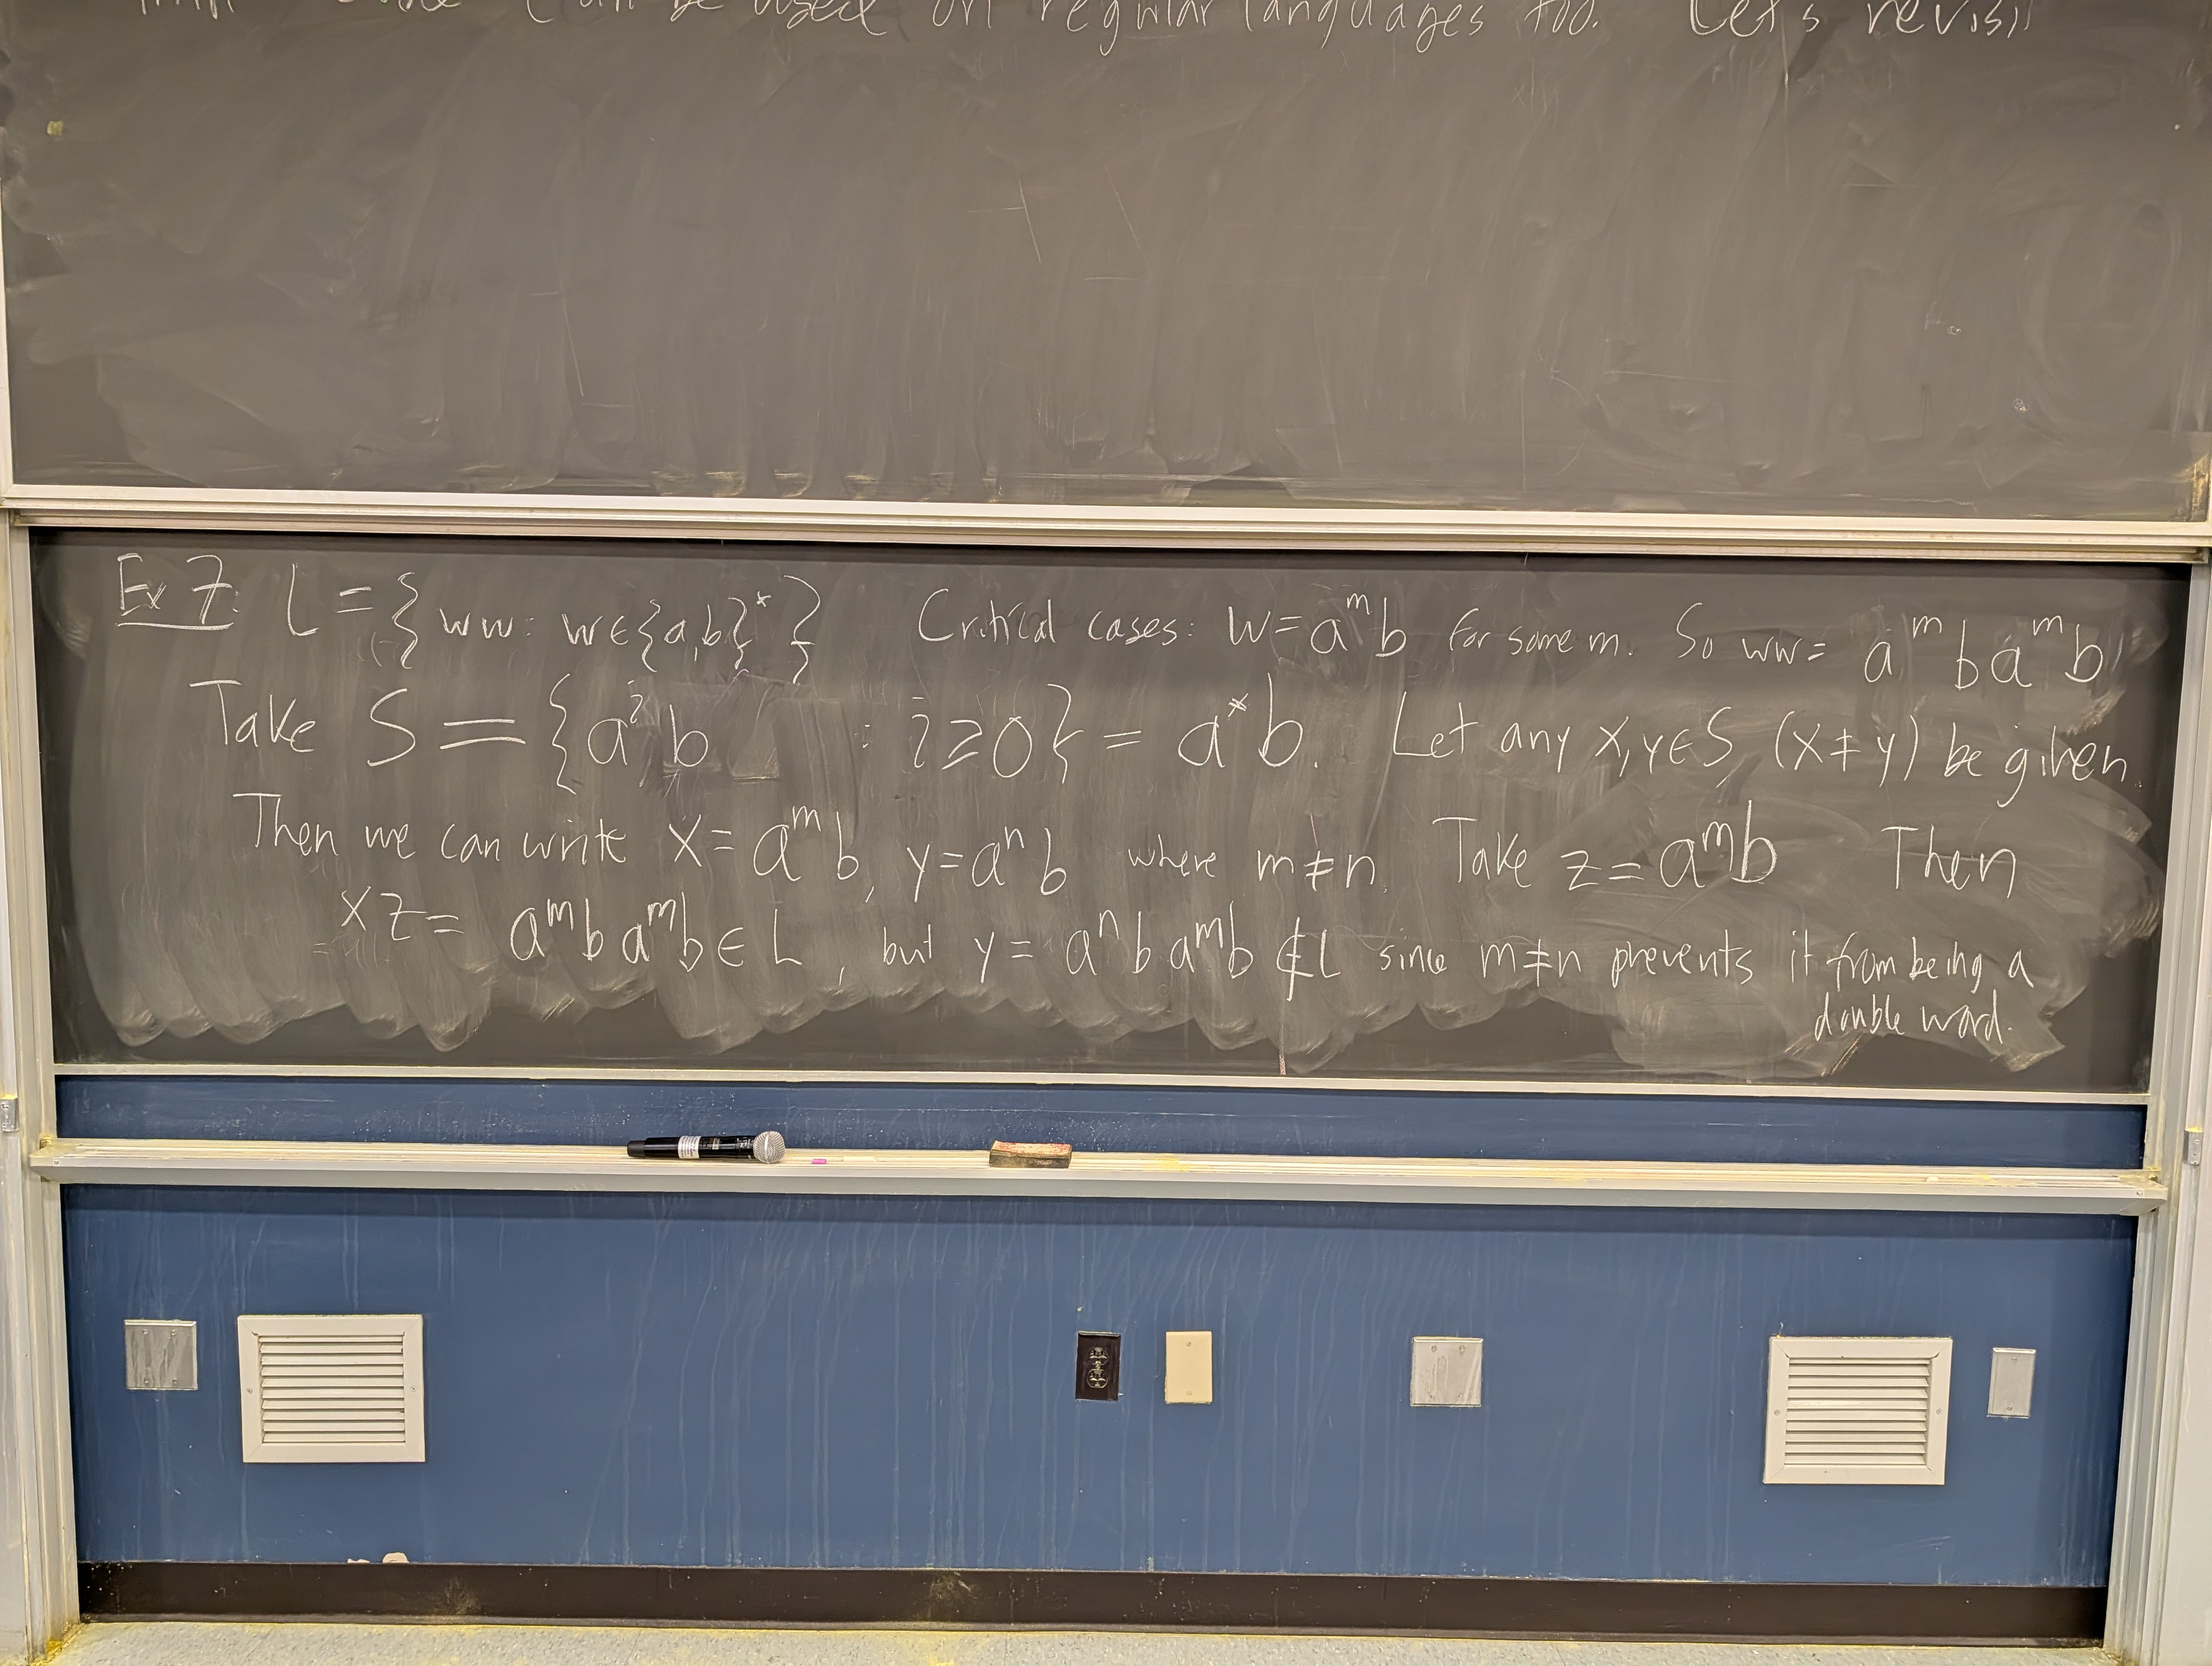 can be used on regular languages too. Let's revisi
Ex 7: L = { ww: w∈{a,b}* } Critical cases: w = aᵐb for some m. So ww = aᵐbaᵐb
Take S = {aⁱb : i≥0} = a*b. Let any x,y∈S (x≠y) be given.
Then we can write x = aᵐb, y = aⁿb where m≠n. Take z = aᵐb Then
xz = aᵐbaᵐb ∈ L, but y = aⁿbaᵐb ∉ L since m≠n prevents it from being a
double word.